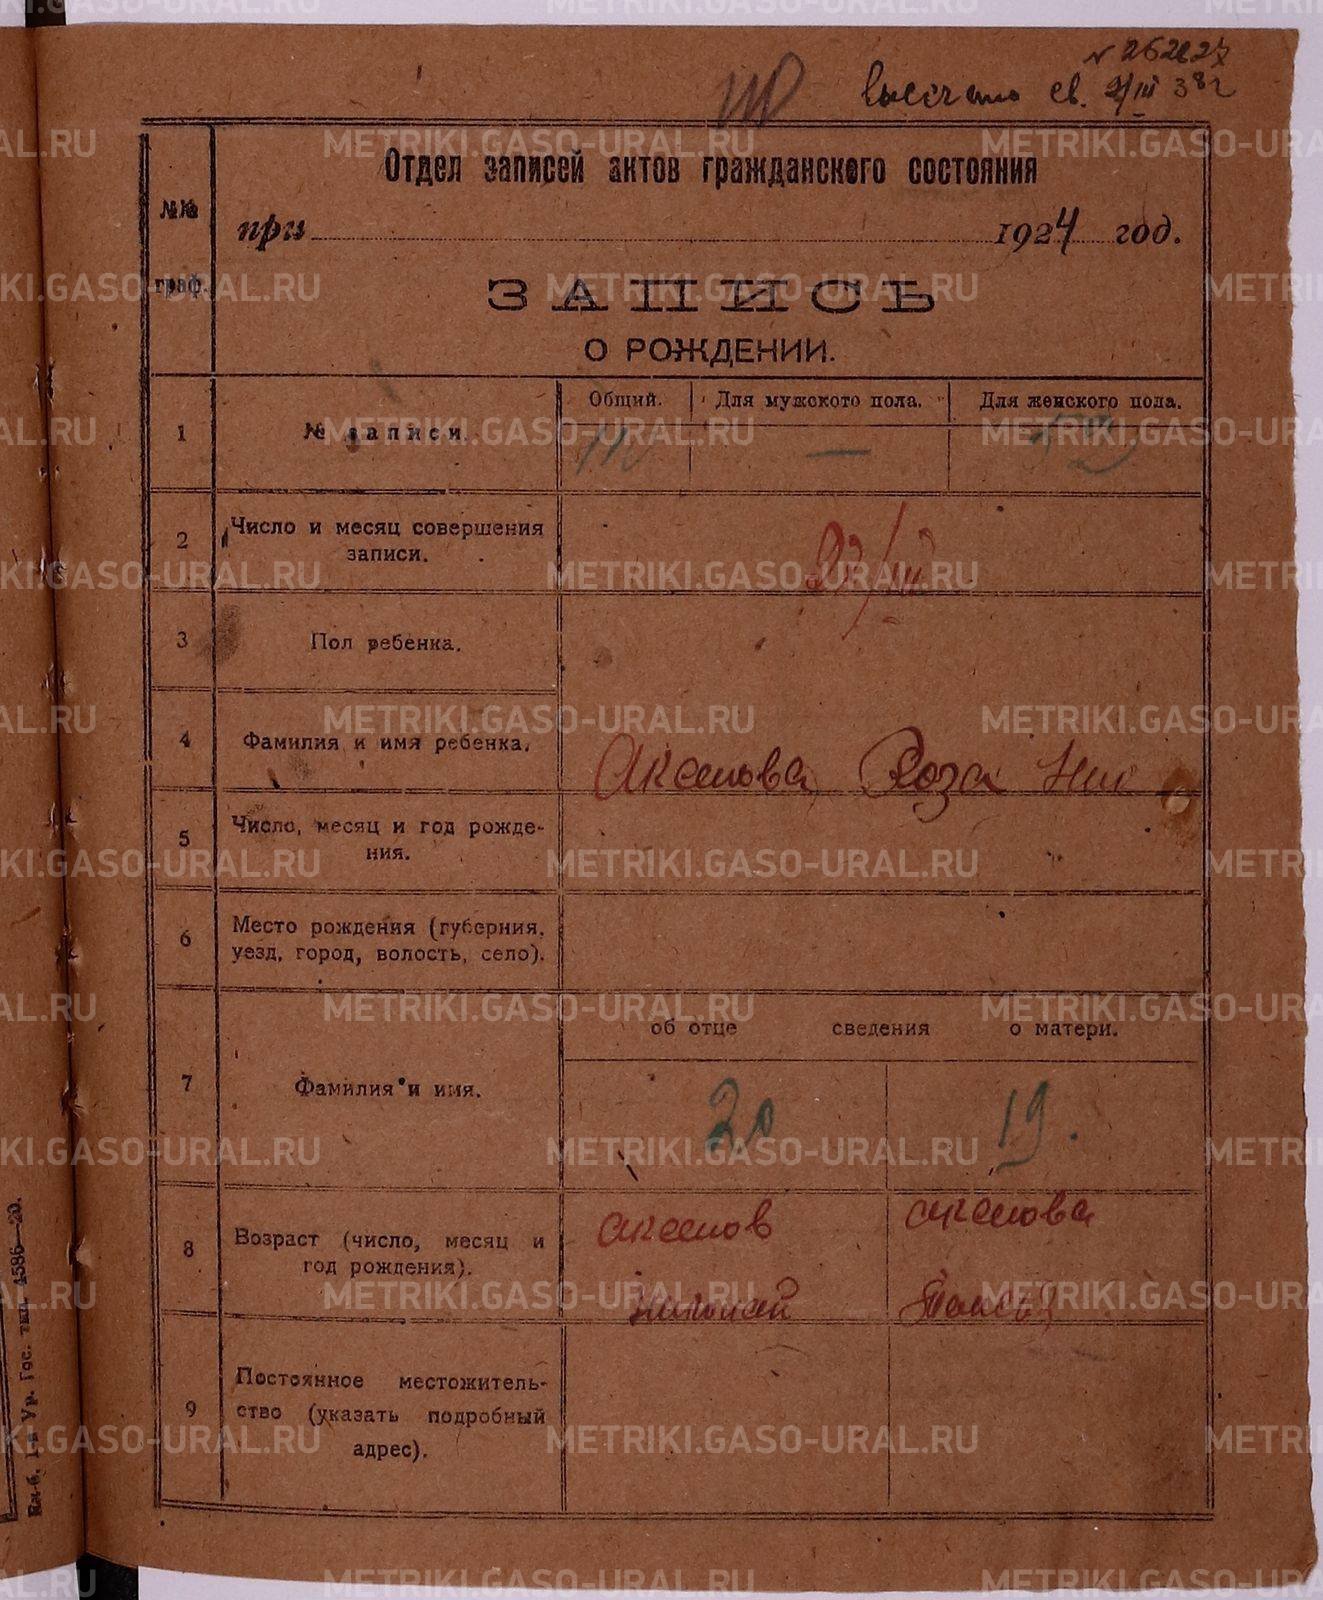 № 262627
св. 9/III 38 г
№№
граф.
Отдел записей актов гражданского состояния
при 1924 год.
ЗАПИСЬ
О РОЖДЕНИИ.
1
№ записи.
Общий.
Для мужского пола.
Для женского пола.
110
—
2
Число и месяц совершения
записи.
3
Пол ребенка.
4
Фамилия и имя ребенка.
Роза Ник
5
Число, месяц и год рожде-
ния.
6
Место рождения (губерния,
уезд, город, волость, село).
об отце сведения о матери.
7
Фамилия и имя.
20
19.
8
Возраст (число, месяц и
год рождения).
Николай
9
Постоянное местожитель-
ство (указать подробный
адрес).
Ек-б. 1-я Ур. Гос. тип. 4586—20.
METRIKI.GASO-URAL.RU